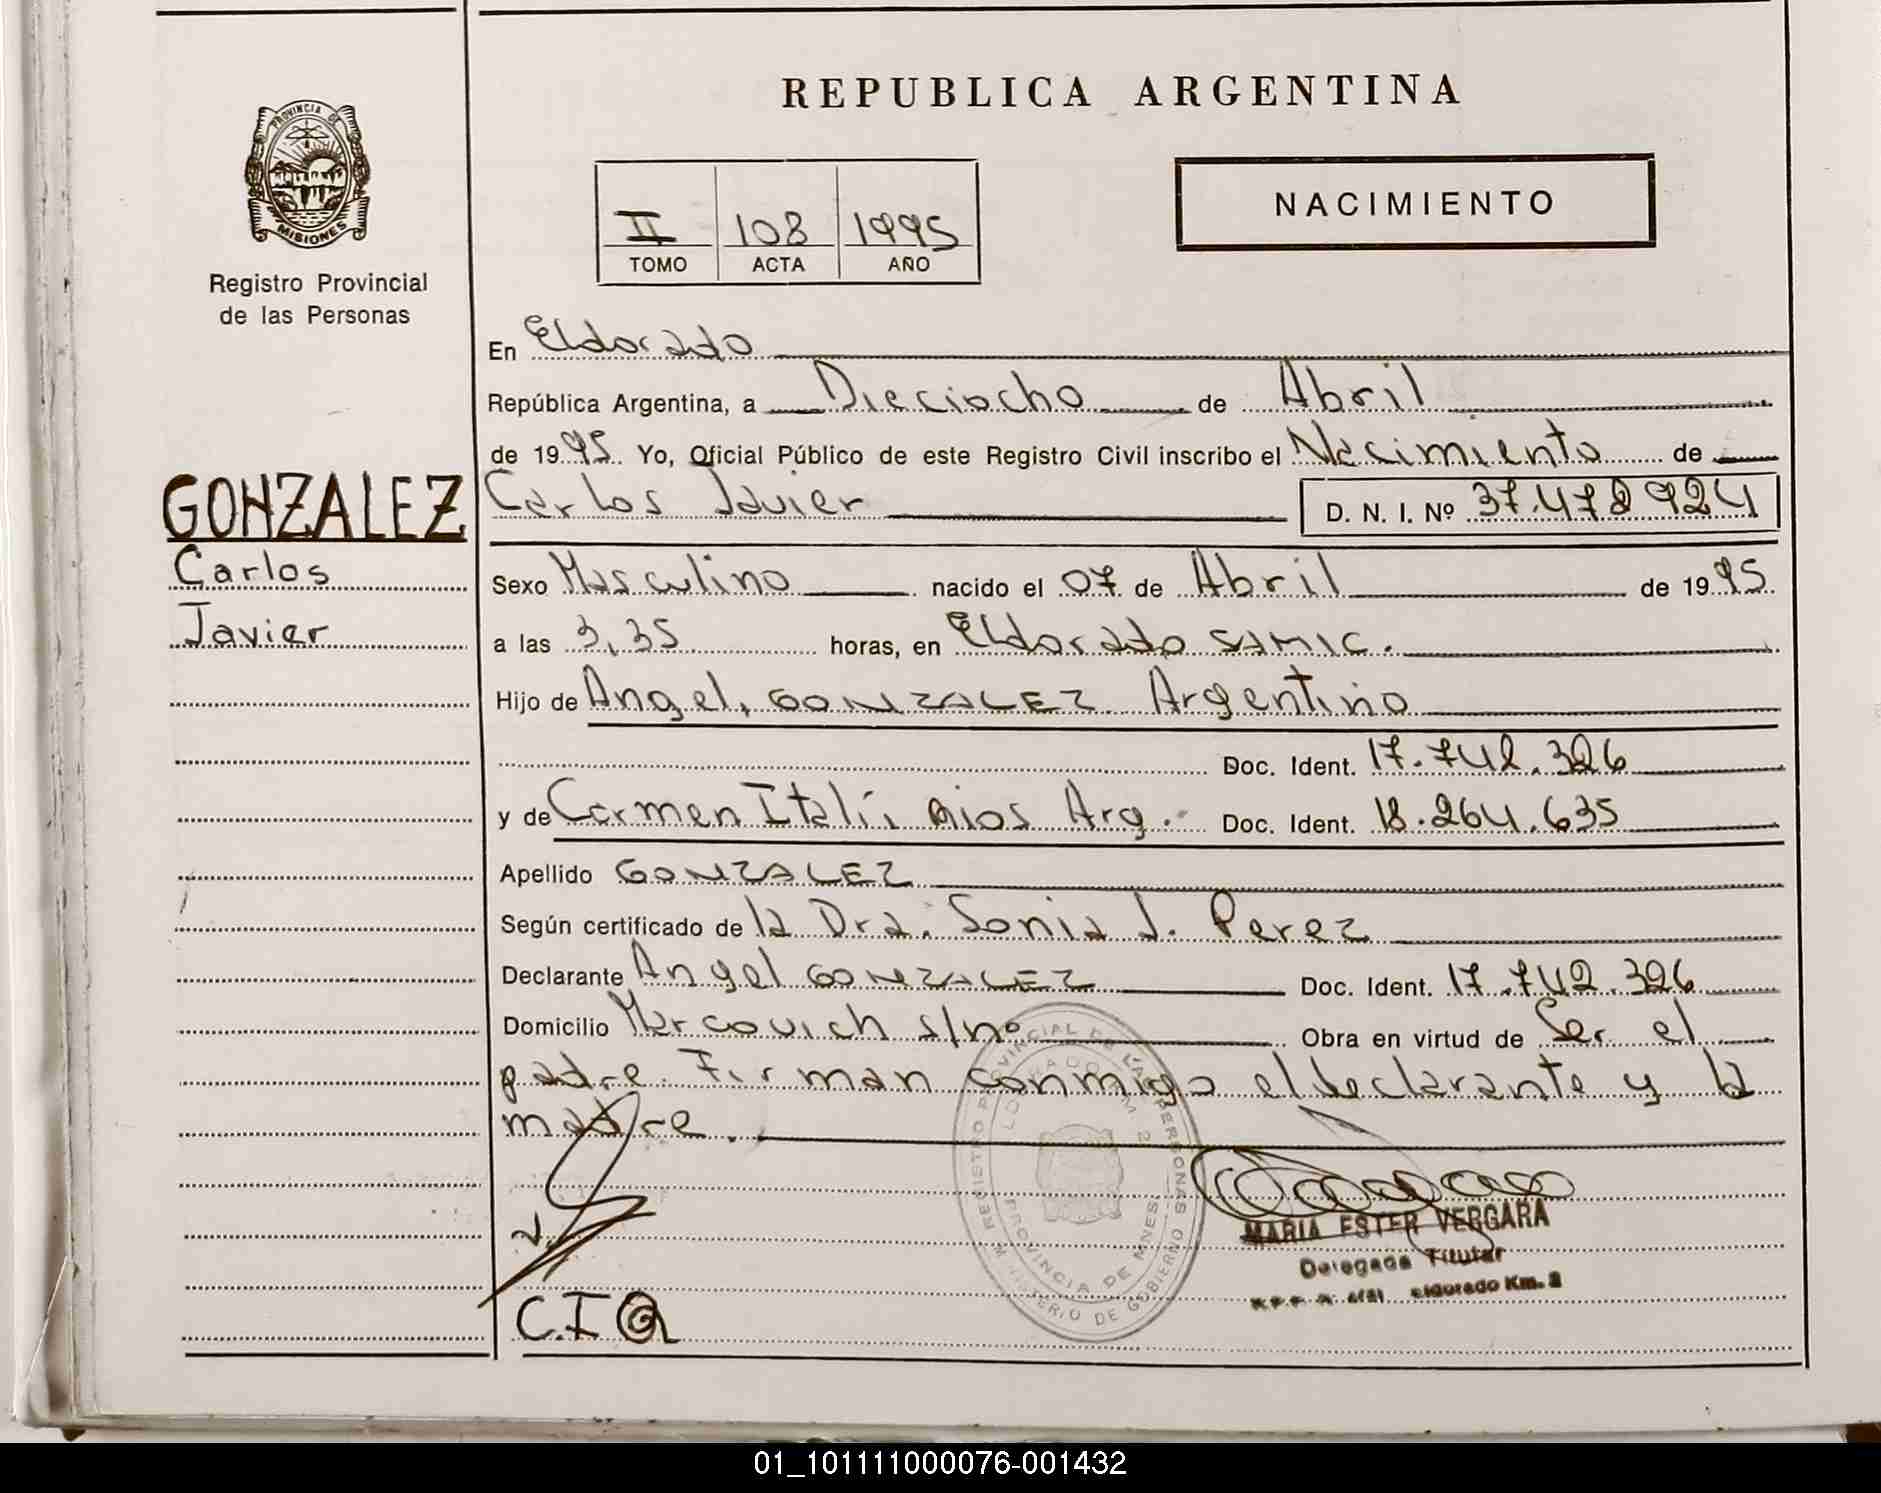 REPUBLICA ARGENTINA
PROVINCIA DE
MISIONES
Registro Provincial
de las Personas
II 108 1995
TOMO ACTA AÑO
NACIMIENTO
En Eldorado
República Argentina, a Dieciocho de Abril
de 1995 Yo, Oficial Público de este Registro Civil inscribo el Nacimiento de
GONZALEZ
Carlos
Javier
Carlos Javier D. N. I. Nº 37.472924
Sexo Masculino nacido el 07 de Abril de 1995
a las 3,35 horas, en Eldorado SAMIC.
Hijo de Angel, GONZALEZ Argentino
Doc. Ident. 17.742.326
y de Carmen Rios Arg. Doc. Ident. 18.264.635
Apellido GONZALEZ
Según certificado de la Dra. Sonia J. Perez
Declarante Angel GONZALEZ Doc. Ident. 17.742.326
Domicilio Marcovich s/nº Obra en virtud de Ser el
padre. Firman conmigo el declarante y la
madre.
REGISTRO PROVINCIAL DE LAS PERSONAS
PROVINCIA DE MNES
MINISTERIO DE GOBIERNO
MARIA ESTER VERGARA
Delegada Titular
Eldorado Km. 2
C.I
01_101111000076-001432